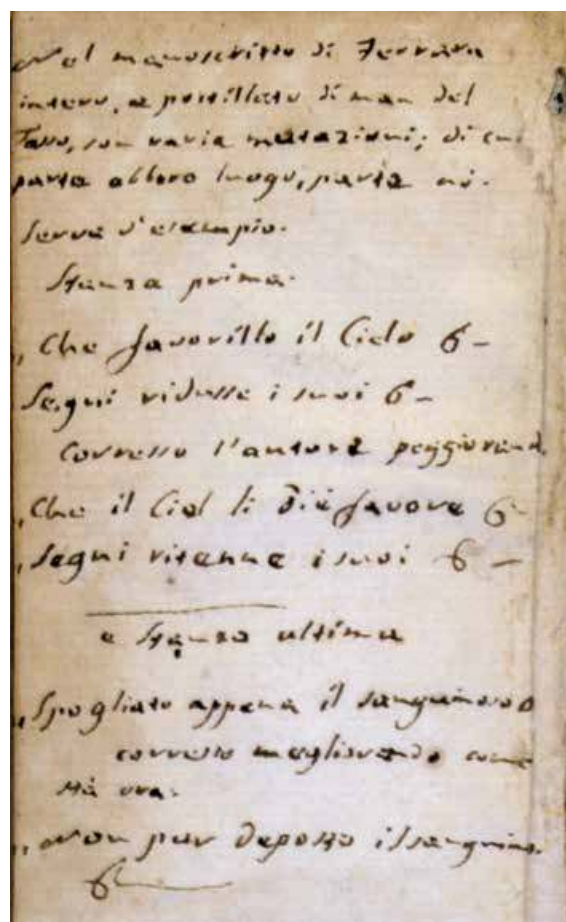 Nel manoscritto di Ferrara
intero, e postillato di man del
Tasso, son varie mutazioni; di cui
parte ebbero luogo, parte nò.
serva d'esempio.
Stanza prima.
„ Che favorillo il Cielo &—
Segni ridusse i suoi &—
corresse l'autore peggiorand.
„ Che il Ciel li diè favore &—
„ Segni ritenne i suoi &—
e Stanza ultima
„ Spogliato appena il sanguinoso &
corresse megliorando come
stà ora.
„ Non pur deposto il sanguino.
&—